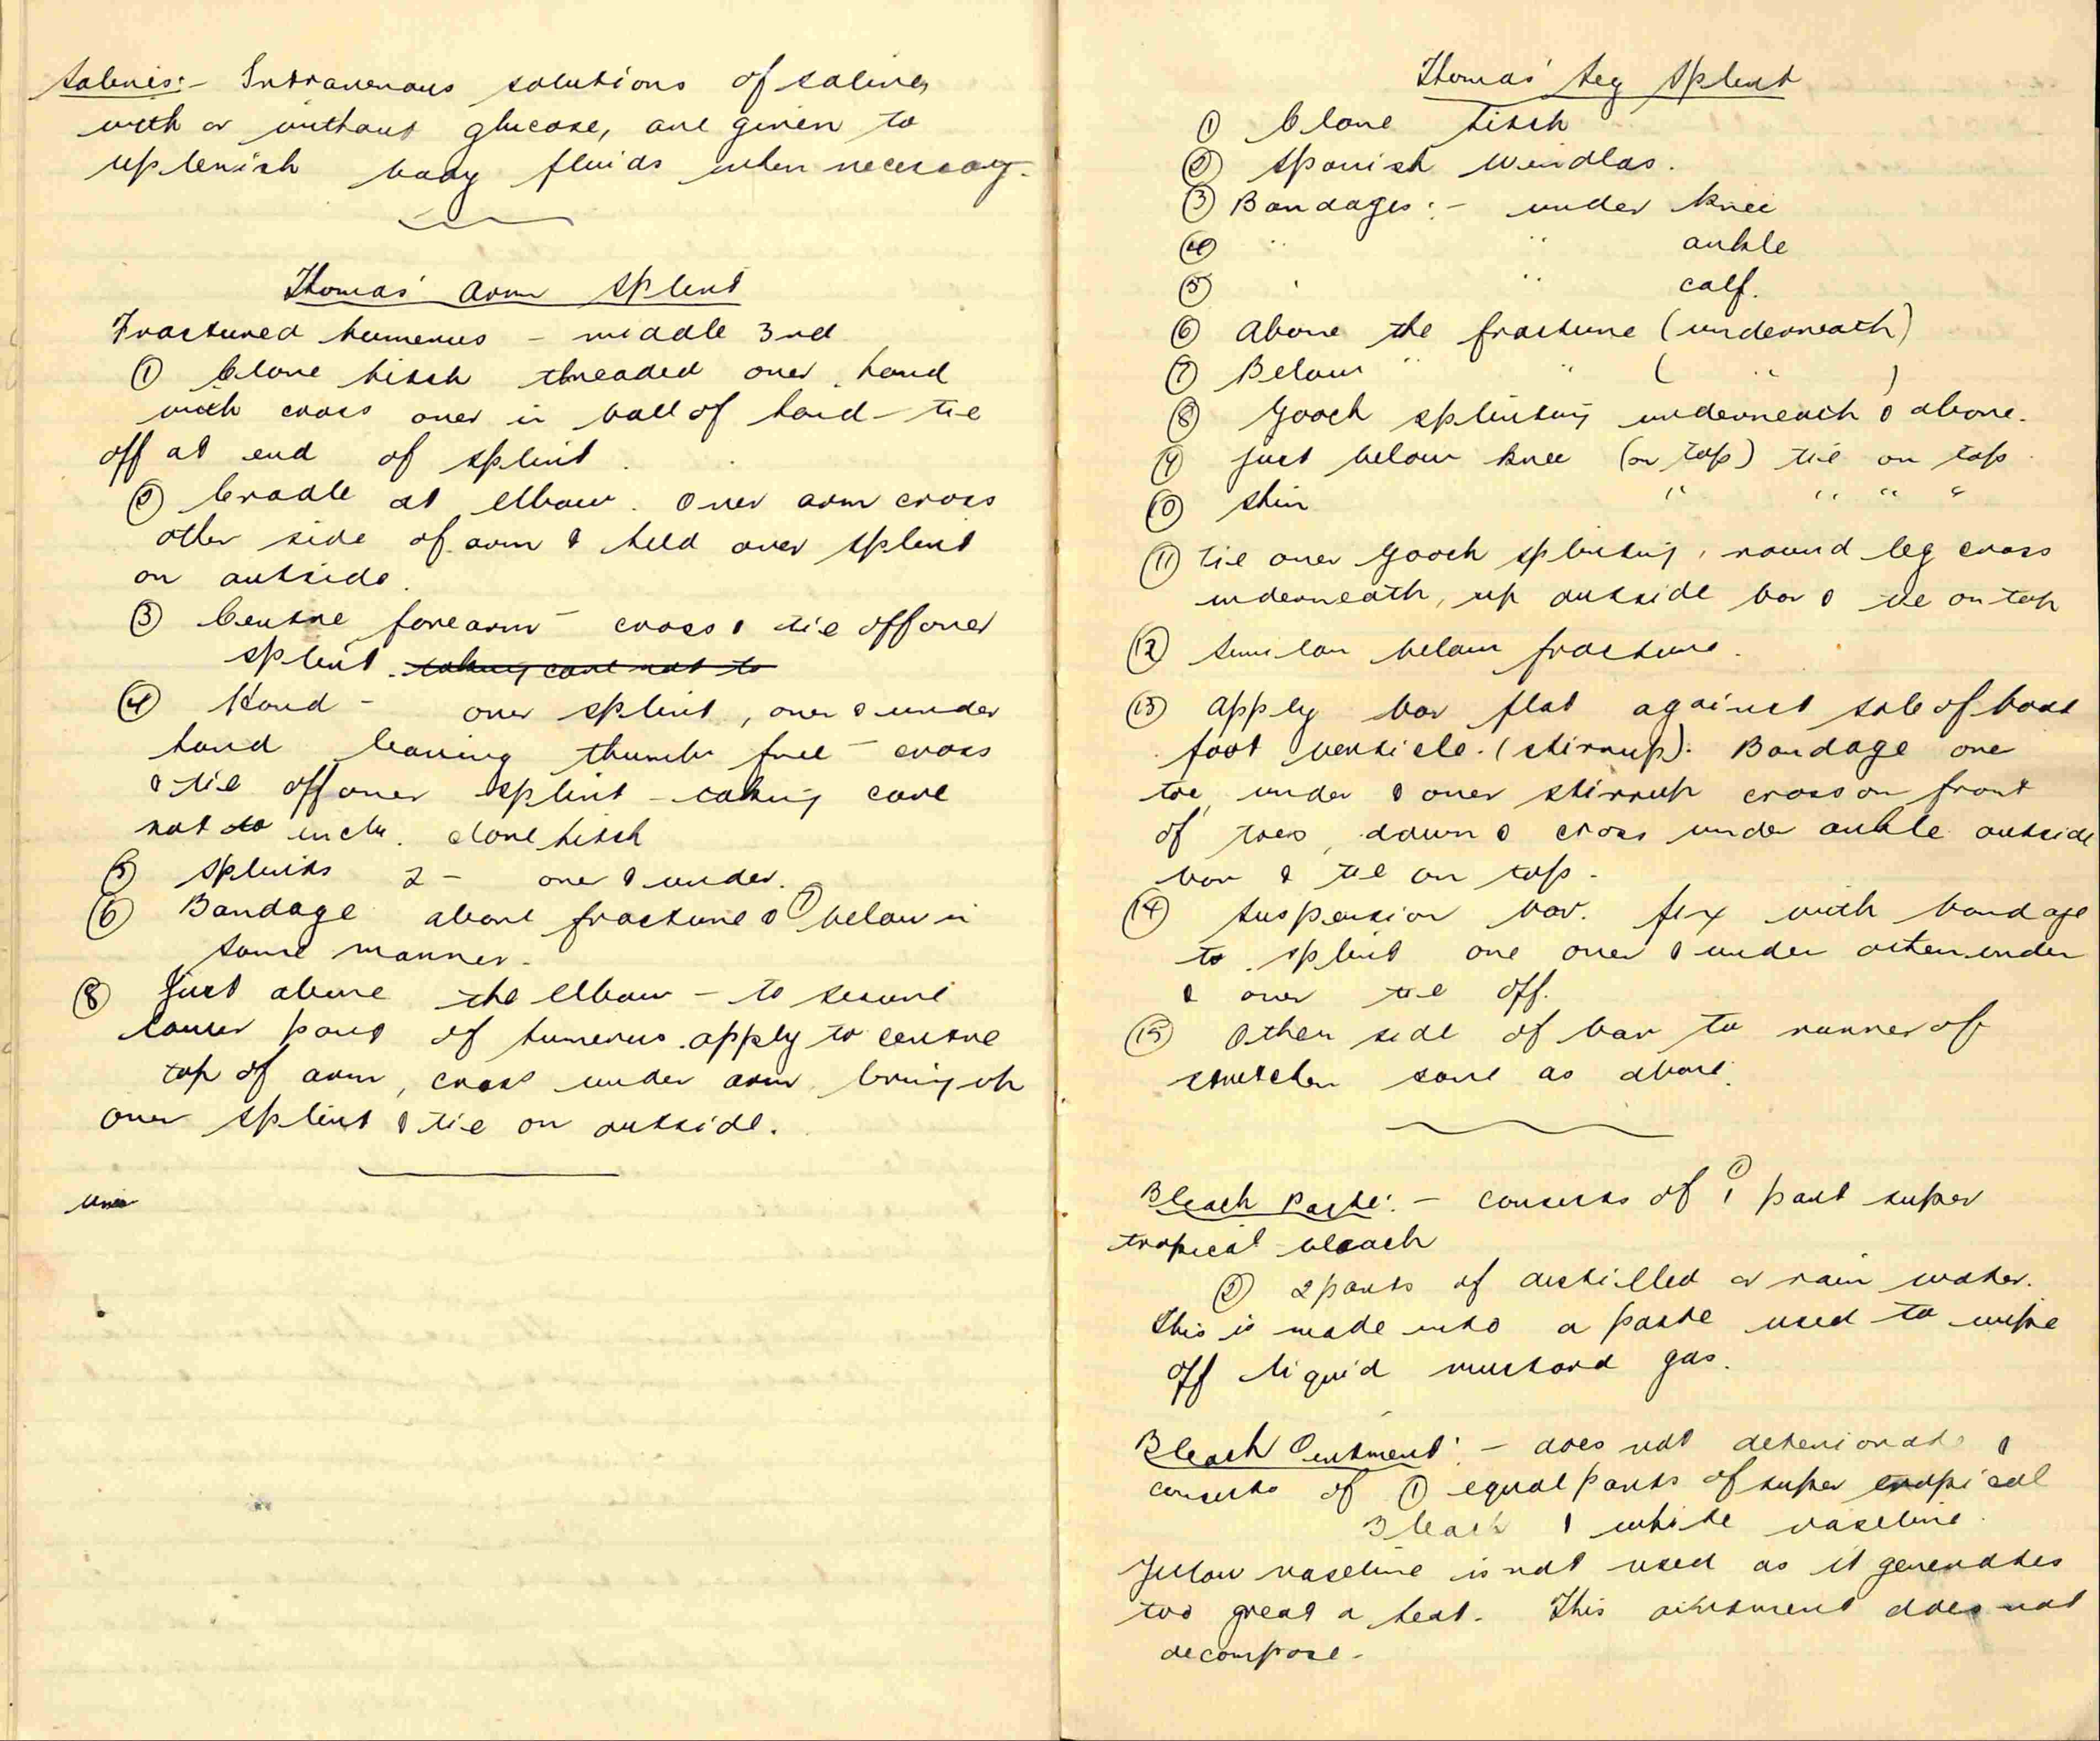 Salines:- Intravenous solutions of salines
with or without glucose, are given to
replenish body fluids when necessary.
Thomas' Arm Splint
Fractured humerus - middle 3rd
① Clove hitch threaded over hand
with cross over in ball of hand - tie
off at end of splint.
② Cradle at elbow. Over arm cross
other side of arm & held over splint
on outside.
③ Centre forearm - cross & tie off over
splint. taking care not to
④ Hand - over splint, over & under
hand leaving thumb free - cross
& tie off over splint - taking care
not to clove hitch
⑤ Splints 2 - over & under.
⑥ Bandage above fracture & ⑦ below in
same manner.
⑧ Just above the elbow - to secure
lower part of humerus. apply to centre
top of arm, cross under arm, bring up
over splint & tie on outside.
Thomas' Leg Splint
① Clove hitch
② Spanish Windlas.
③ Bandages:- under knee
④ " " ankle
⑤ " " calf.
⑥ Above the fracture (underneath)
⑦ Below " " ( " )
⑧ Gooch splinting underneath & above.
⑨ Just below knee (on top) tie on top
⑩ Shin " " " "
⑪ tie over Gooch splinting, round leg cross
underneath, up outside bar & tie on top
⑫ Similar below fracture.
⑬ Apply bar flat against sole of boot
foot verticle. (stirrup). Bandage one
toe, under & over stirrup cross on front
of toes, down & cross under ankle outside
bar & tie on top.
⑭ Suspension bar. fix with bandage
to splint one over & under other under
& over tie off.
⑮ Other side of bar to runner of
stretcher same as above.
Bleach Paste:- consists of ① 1 part super
tropical bleach
② 2 parts of distilled or rain water.
This is made into a paste used to wipe
off liquid mustard gas.
Bleach Ointment:- does not deteriorate &
consists of ① equal parts of super tropical
Bleach & white vaseline.
Yellow vaseline is not used as it generates
too great a heat. This ointment does not
decompose.